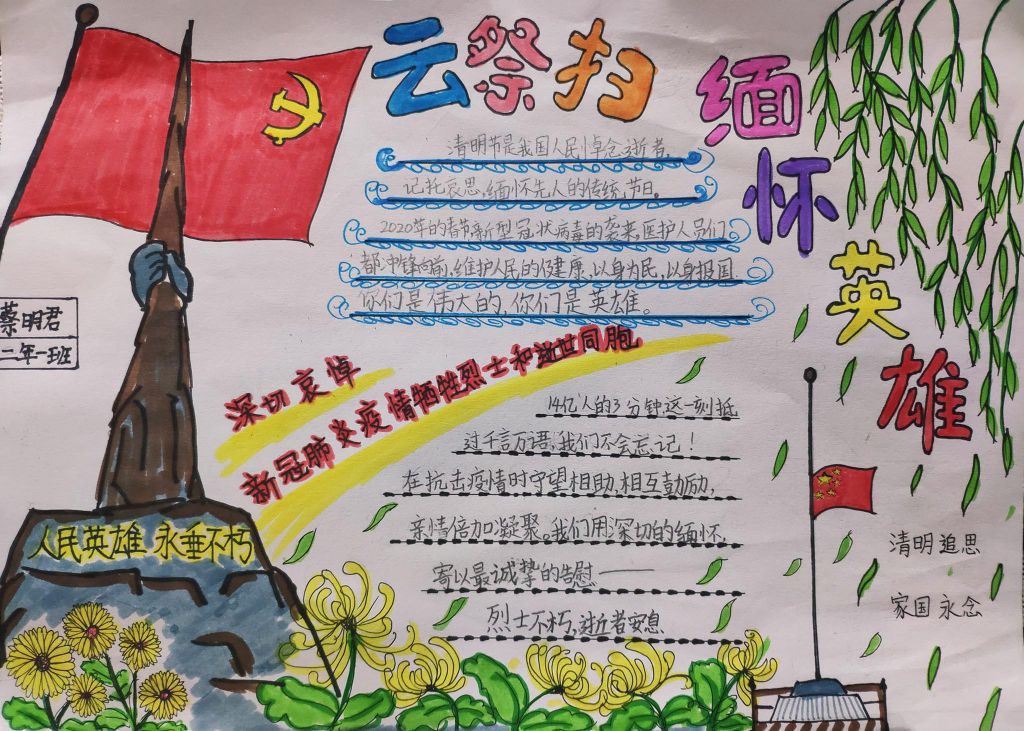 云祭扫
缅怀英雄
清明节是我国人民悼念逝者,
记托哀思,缅怀先人的传统节日。
2020年的春节新型冠状病毒的袭来,医护人员们
都冲锋向前,维护人民的健康,以身为民,以身报国
你们是伟大的,你们是英雄。
蔡明君
二年一班
深切哀悼
新冠肺炎疫情牺牲烈士和逝世同胞
14亿人的3分钟这一刻抵
过千言万语,我们不会忘记!
在抗击疫情时守望相助,相互鼓励,
亲情倍加凝聚。我们用深切的缅怀,
寄以最诚挚的告慰——
烈士不朽,逝者安息
人民英雄 永垂不朽
清明追思
家国永念